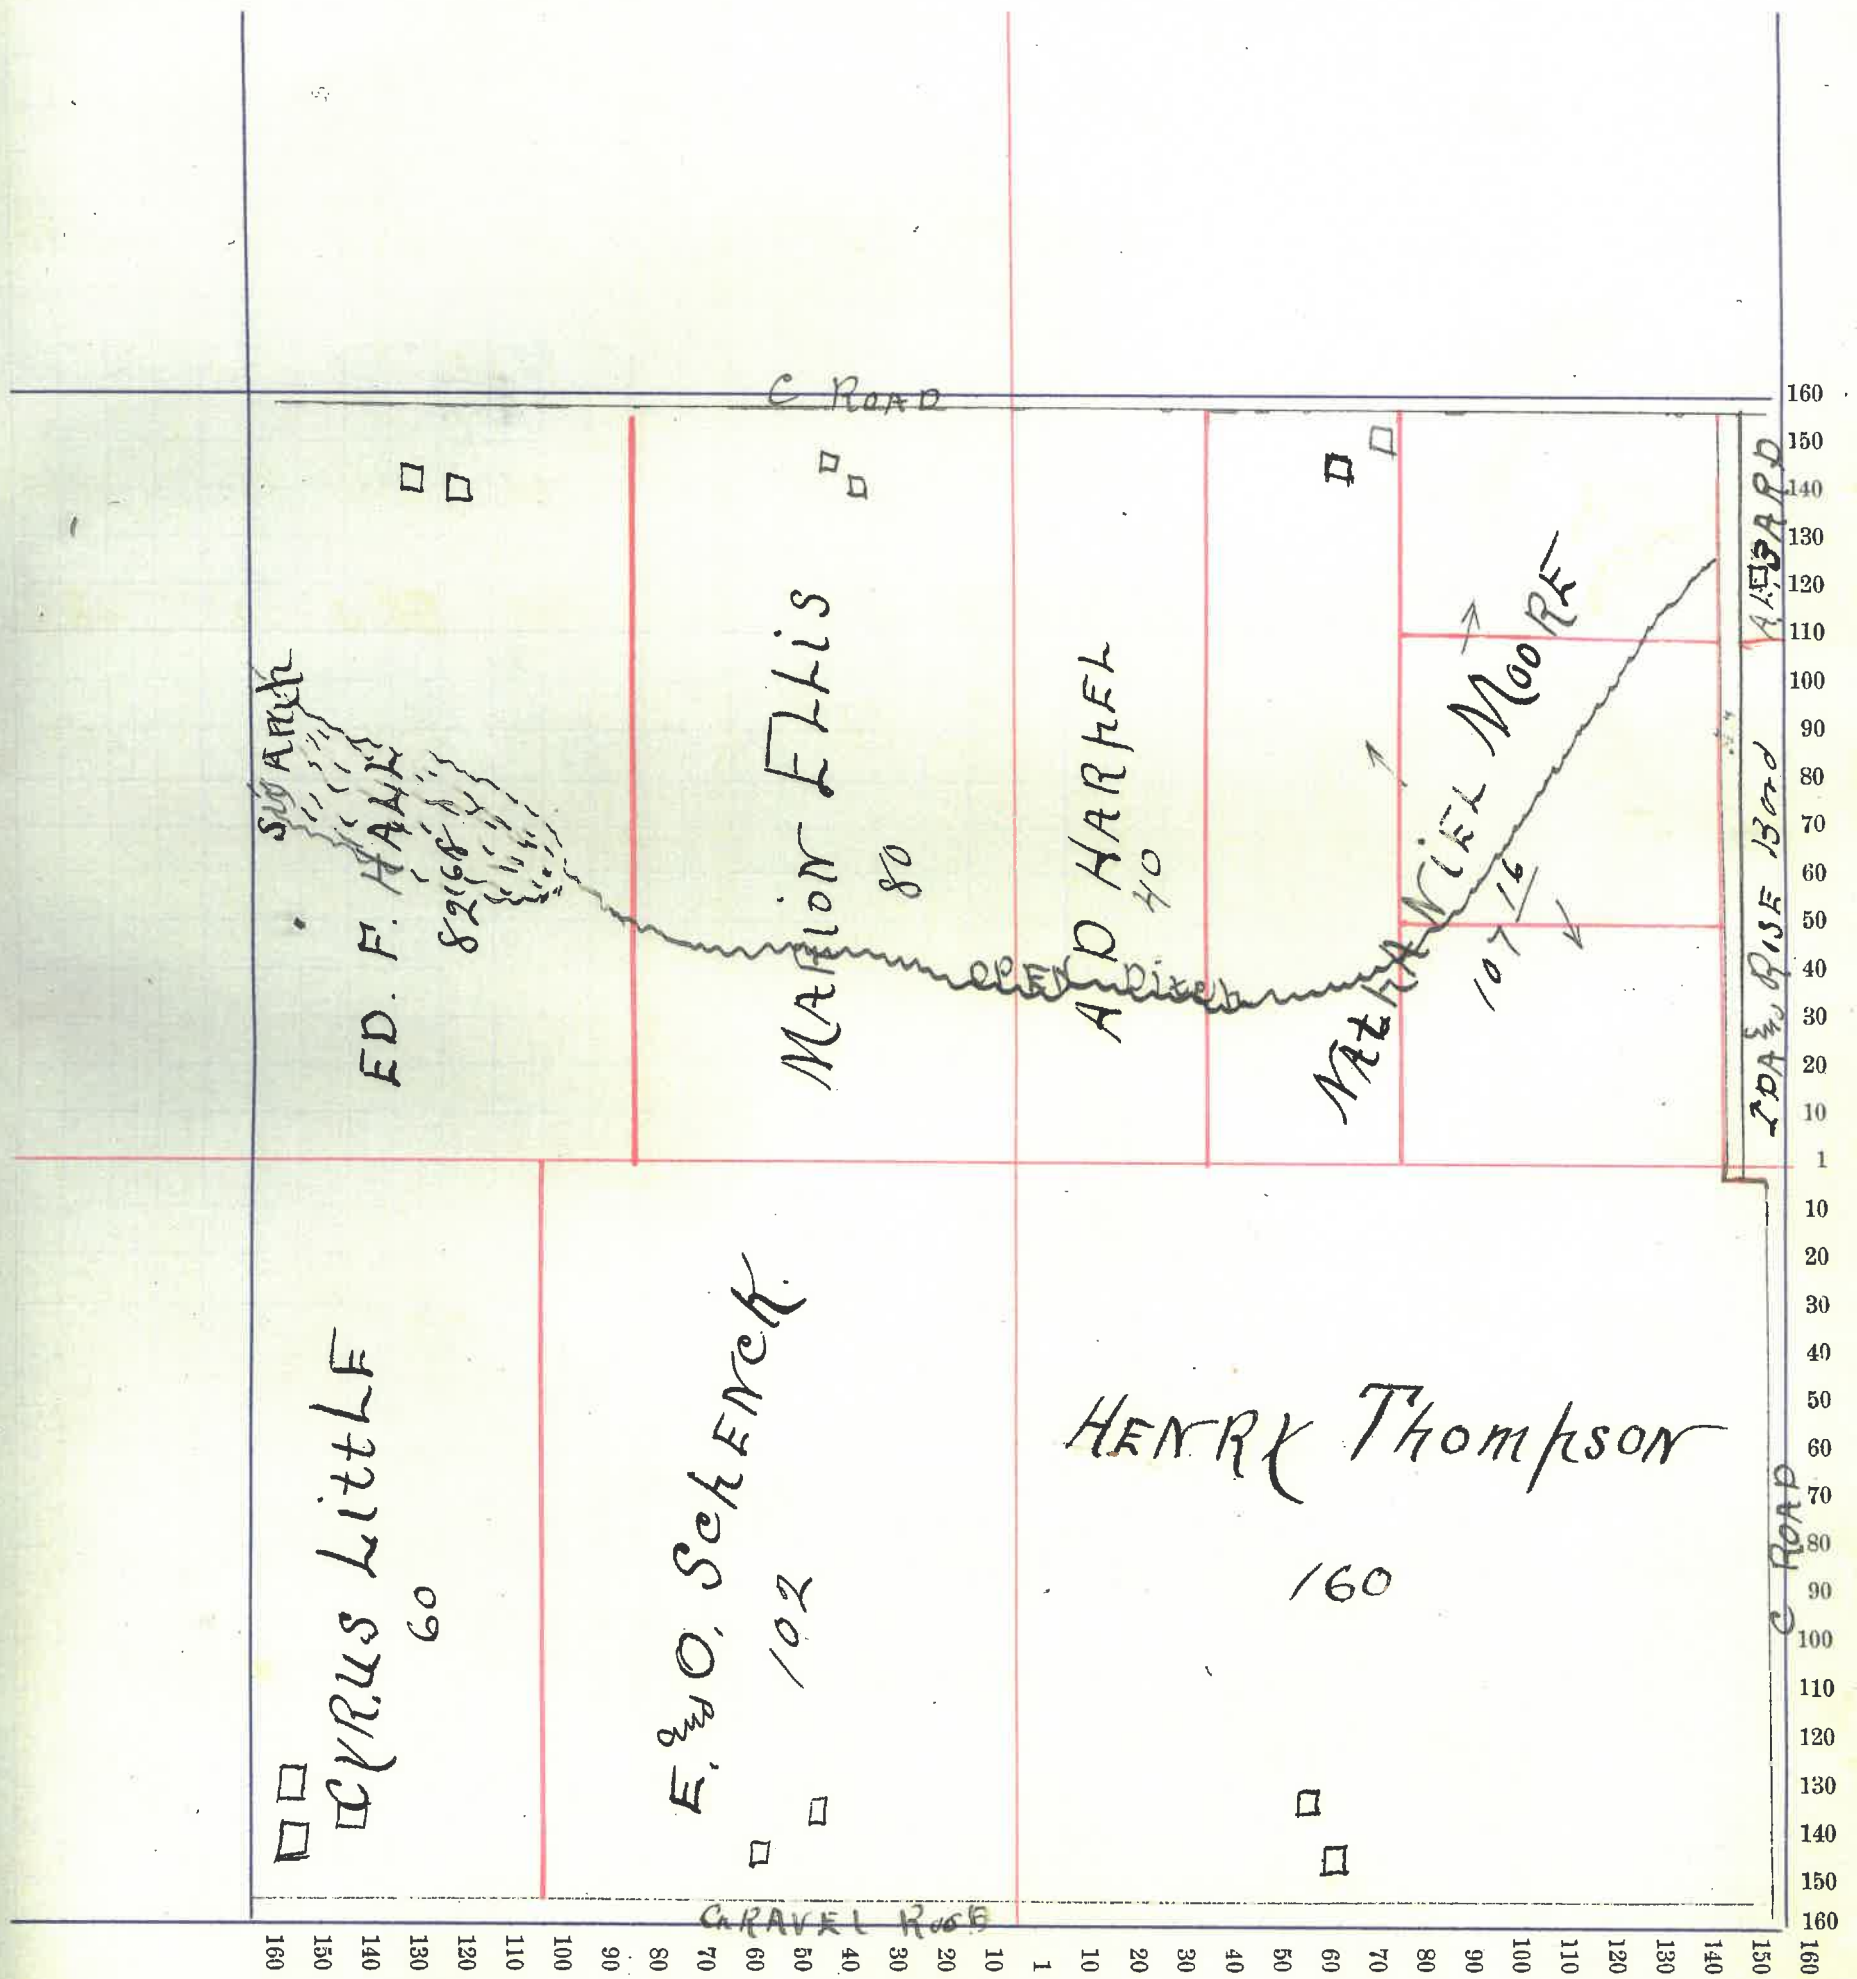 C ROAD
SWAMP
ED. F. HALL
82 68
MARION ELLIS
80
OPEN Ditch
A D HARPEL
40
NAthANiEL MooRE
107 16
ALBARD
IDA & RISE Bond
CYRUS LittLE
60
E. & O. SchENCK.
102
HENRY Thompson
160
C ROAD
GRAVEL
160
150
140
130
120
110
100
90
80
70
60
50
40
30
20
10
1
10
20
30
40
50
60
70
80
90
100
110
120
130
140
150
160
160 150 140 130 120 110 100 90 80 70 60 50 40 30 20 10 1 10 20 30 40 50 60 70 80 90 100 110 120 130 140 150 160